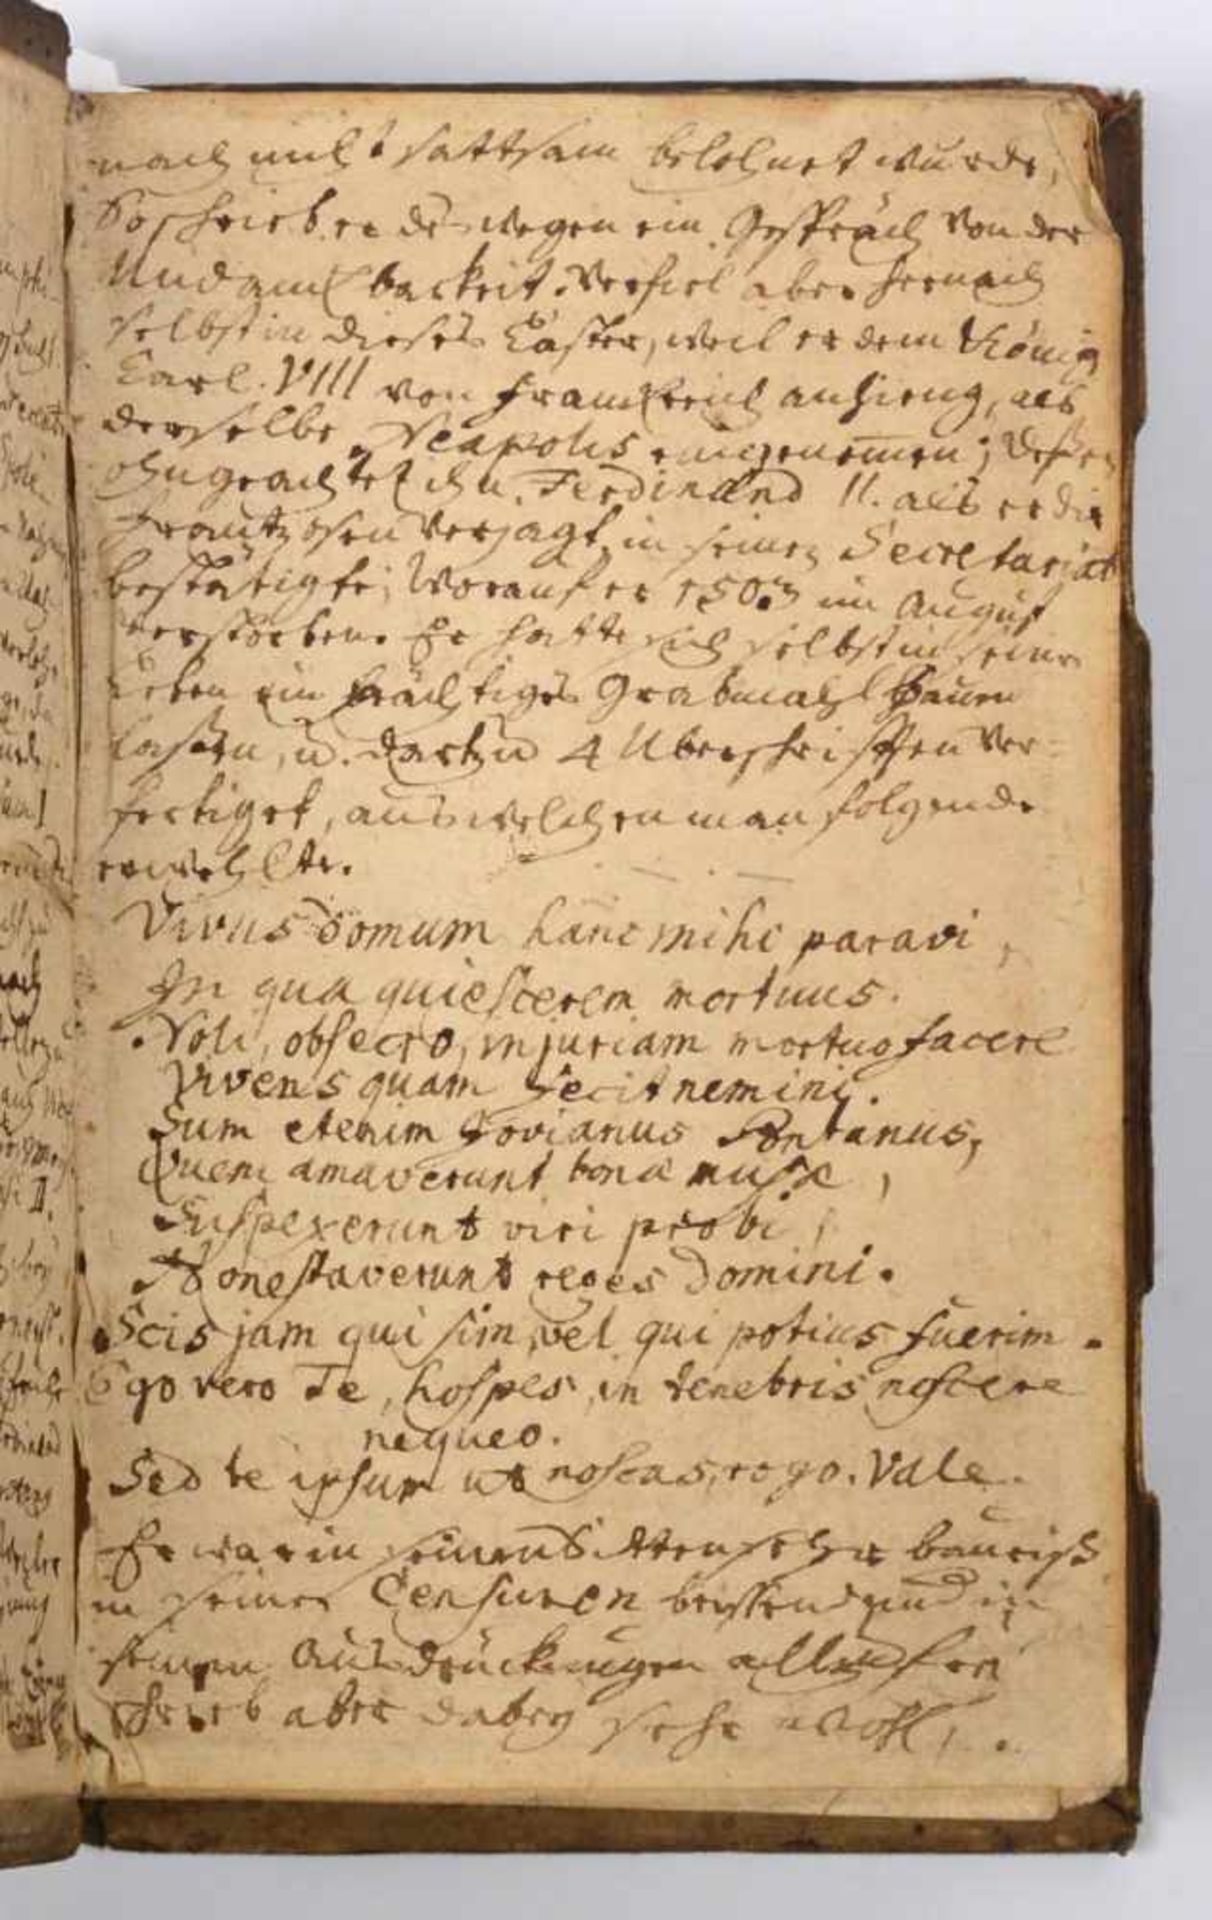 nach nicht sattsam belohnet wurde,
So schrieb er deswegen ein Gespräch von der
Undanckbarkeit. Verfiel aber hernach
selbst in dieses Laster, weil er dem König
Carl. VIII von Franckreich anhieng, als
derselbe Neapolis eingenomen; dessen
ohngeachtet ihn Ferdinand II. als er die
Frantzosen verjagt, in seinen Secretariat
bestätigte; Worauf er 1503 im August
verstorben. Er hatte sich selbst in seinem
Leben ein prächtiges Grabmahl bauen
lassen, u. dartzu 4 Überschrifften ver-
fertiget, aus welchen man folgende
erwehlte.
Vivus domum hanc mihi paravi,
In qua quiescerem mortuus.
Noli, obsecro, injuriam mortuo facere
Vivens quam fecit nemini.
Sum etenim Jovianus Pontanus,
Quem amaverunt bonæ musæ,
Suspexerunt viri probi,
Honestaverunt reges Domini.
Scis jam qui sim, vel qui potius fuerim.
Ego vero Te, hospes, in tenebris noscere
nequeo.
Sed te ipsum ut noscas, rogo. Vale.
Er war in seinen Sitten sehr bäurisch
in seinen Censuren beissend und in
seinen Ausdrückungen allzufrei
schrieb aber dabey sehr wohl.